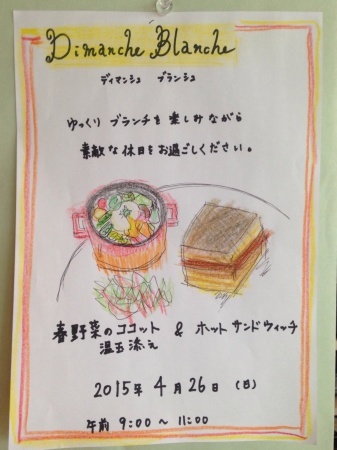 Dimanche Blanche
ディマンシュ ブランシュ
ゆっくり ブランチを 楽しみながら
素敵な休日をお過ごしください。
春野菜のココット & ホットサンドウィッチ
温玉添え
2015年 4月26日 (日)
午前 9:00 ~ 11:00